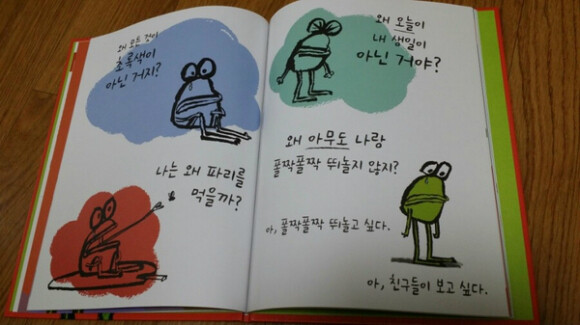 왜 모든 것이
초록색이
아닌 거지?
나는 왜 파리를
먹을까?
왜 오늘이
내 생일이
아닌 거야?
왜 아무도 나랑
폴짝폴짝 뛰놀지 않지?
아, 폴짝폴짝 뛰놀고 싶다.
아, 친구들이 보고 싶다.